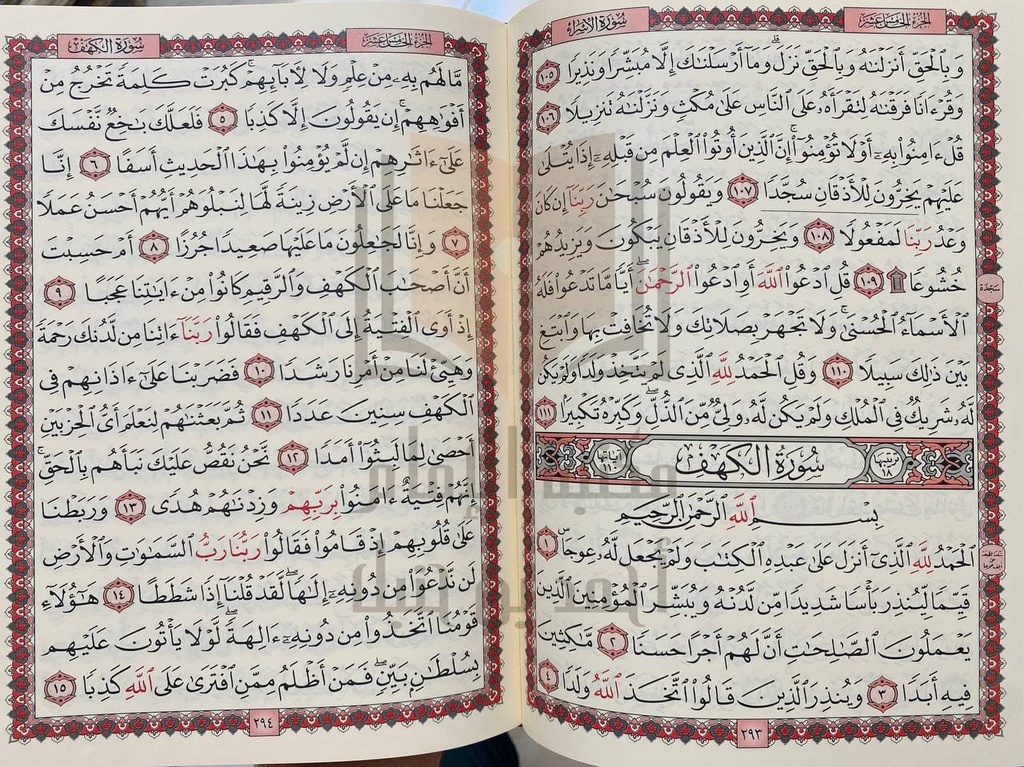 الجزء الخامس عشر
سورة الإسراء
وَبِالْحَقِّ أَنزَلْنَاهُ وَبِالْحَقِّ نَزَلَ ۗ وَمَا أَرْسَلْنَاكَ إِلَّا مُبَشِّرًا وَنَذِيرًا ١٠٥
وَقُرْءَانًا فَرَقْنَاهُ لِتَقْرَأَهُ عَلَى النَّاسِ عَلَىٰ مُكْثٍ وَنَزَّلْنَاهُ تَنزِيلًا ١٠٦
قُلْ ءَامِنُوا بِهِ أَوْ لَا تُؤْمِنُوا ۚ إِنَّ الَّذِينَ أُوتُوا الْعِلْمَ مِن قَبْلِهِ إِذَا يُتْلَىٰ
عَلَيْهِمْ يَخِرُّونَ لِلْأَذْقَانِ سُجَّدًا ١٠٧ وَيَقُولُونَ سُبْحَانَ رَبِّنَا إِن كَانَ
وَعْدُ رَبِّنَا لَمَفْعُولًا ١٠٨ وَيَخِرُّونَ لِلْأَذْقَانِ يَبْكُونَ وَيَزِيدُهُمْ
خُشُوعًا ۩ ١٠٩ قُلِ ادْعُوا اللَّهَ أَوِ ادْعُوا الرَّحْمَٰنَ ۖ أَيًّا مَّا تَدْعُوا فَلَهُ
سجدة
الْأَسْمَاءُ الْحُسْنَىٰ ۚ وَلَا تَجْهَرْ بِصَلَاتِكَ وَلَا تُخَافِتْ بِهَا وَابْتَغِ
بَيْنَ ذَٰلِكَ سَبِيلًا ١١٠ وَقُلِ الْحَمْدُ لِلَّهِ الَّذِي لَمْ يَتَّخِذْ وَلَدًا وَلَمْ يَكُن
لَّهُ شَرِيكٌ فِي الْمُلْكِ وَلَمْ يَكُن لَّهُ وَلِيٌّ مِّنَ الذُّلِّ ۖ وَكَبِّرْهُ تَكْبِيرًا ١١١
ترتيبها ١٨ سُورَةُ الْكَهْفِ آياتها ١١٠
بِسْمِ اللَّهِ الرَّحْمَٰنِ الرَّحِيمِ
الْحَمْدُ لِلَّهِ الَّذِي أَنزَلَ عَلَىٰ عَبْدِهِ الْكِتَابَ وَلَمْ يَجْعَل لَّهُ عِوَجًا ۜ ١
قَيِّمًا لِّيُنذِرَ بَأْسًا شَدِيدًا مِّن لَّدُنْهُ وَيُبَشِّرَ الْمُؤْمِنِينَ الَّذِينَ
يَعْمَلُونَ الصَّالِحَاتِ أَنَّ لَهُمْ أَجْرًا حَسَنًا ٢ مَّاكِثِينَ
فِيهِ أَبَدًا ٣ وَيُنذِرَ الَّذِينَ قَالُوا اتَّخَذَ اللَّهُ وَلَدًا ٤
٢٩٣
الجزء الخامس عشر
سورة الكهف
مَّا لَهُم بِهِ مِنْ عِلْمٍ وَلَا لِآبَائِهِمْ ۚ كَبُرَتْ كَلِمَةً تَخْرُجُ مِنْ
أَفْوَاهِهِمْ ۚ إِن يَقُولُونَ إِلَّا كَذِبًا ٥ فَلَعَلَّكَ بَاخِعٌ نَّفْسَكَ
عَلَىٰ ءَاثَارِهِمْ إِن لَّمْ يُؤْمِنُوا بِهَٰذَا الْحَدِيثِ أَسَفًا ٦ إِنَّا
جَعَلْنَا مَا عَلَى الْأَرْضِ زِينَةً لَّهَا لِنَبْلُوَهُمْ أَيُّهُمْ أَحْسَنُ عَمَلًا
٧ وَإِنَّا لَجَاعِلُونَ مَا عَلَيْهَا صَعِيدًا جُرُزًا ٨ أَمْ حَسِبْتَ
أَنَّ أَصْحَابَ الْكَهْفِ وَالرَّقِيمِ كَانُوا مِنْ ءَايَاتِنَا عَجَبًا ٩
إِذْ أَوَى الْفِتْيَةُ إِلَى الْكَهْفِ فَقَالُوا رَبَّنَا ءَاتِنَا مِن لَّدُنكَ رَحْمَةً
وَهَيِّئْ لَنَا مِنْ أَمْرِنَا رَشَدًا ١٠ فَضَرَبْنَا عَلَىٰ ءَاذَانِهِمْ فِي
الْكَهْفِ سِنِينَ عَدَدًا ١١ ثُمَّ بَعَثْنَاهُمْ لِنَعْلَمَ أَيُّ الْحِزْبَيْنِ
أَحْصَىٰ لِمَا لَبِثُوا أَمَدًا ١٢ نَّحْنُ نَقُصُّ عَلَيْكَ نَبَأَهُم بِالْحَقِّ ۚ
إِنَّهُمْ فِتْيَةٌ ءَامَنُوا بِرَبِّهِمْ وَزِدْنَاهُمْ هُدًى ١٣ وَرَبَطْنَا
عَلَىٰ قُلُوبِهِمْ إِذْ قَامُوا فَقَالُوا رَبُّنَا رَبُّ السَّمَاوَاتِ وَالْأَرْضِ
لَن نَّدْعُوَا مِن دُونِهِ إِلَٰهًا ۖ لَّقَدْ قُلْنَا إِذًا شَطَطًا ١٤ هَٰؤُلَاءِ
قَوْمُنَا اتَّخَذُوا مِن دُونِهِ ءَالِهَةً ۖ لَّوْلَا يَأْتُونَ عَلَيْهِم
بِسُلْطَانٍ بَيِّنٍ ۖ فَمَنْ أَظْلَمُ مِمَّنِ افْتَرَىٰ عَلَى اللَّهِ كَذِبًا ١٥
٢٩٤